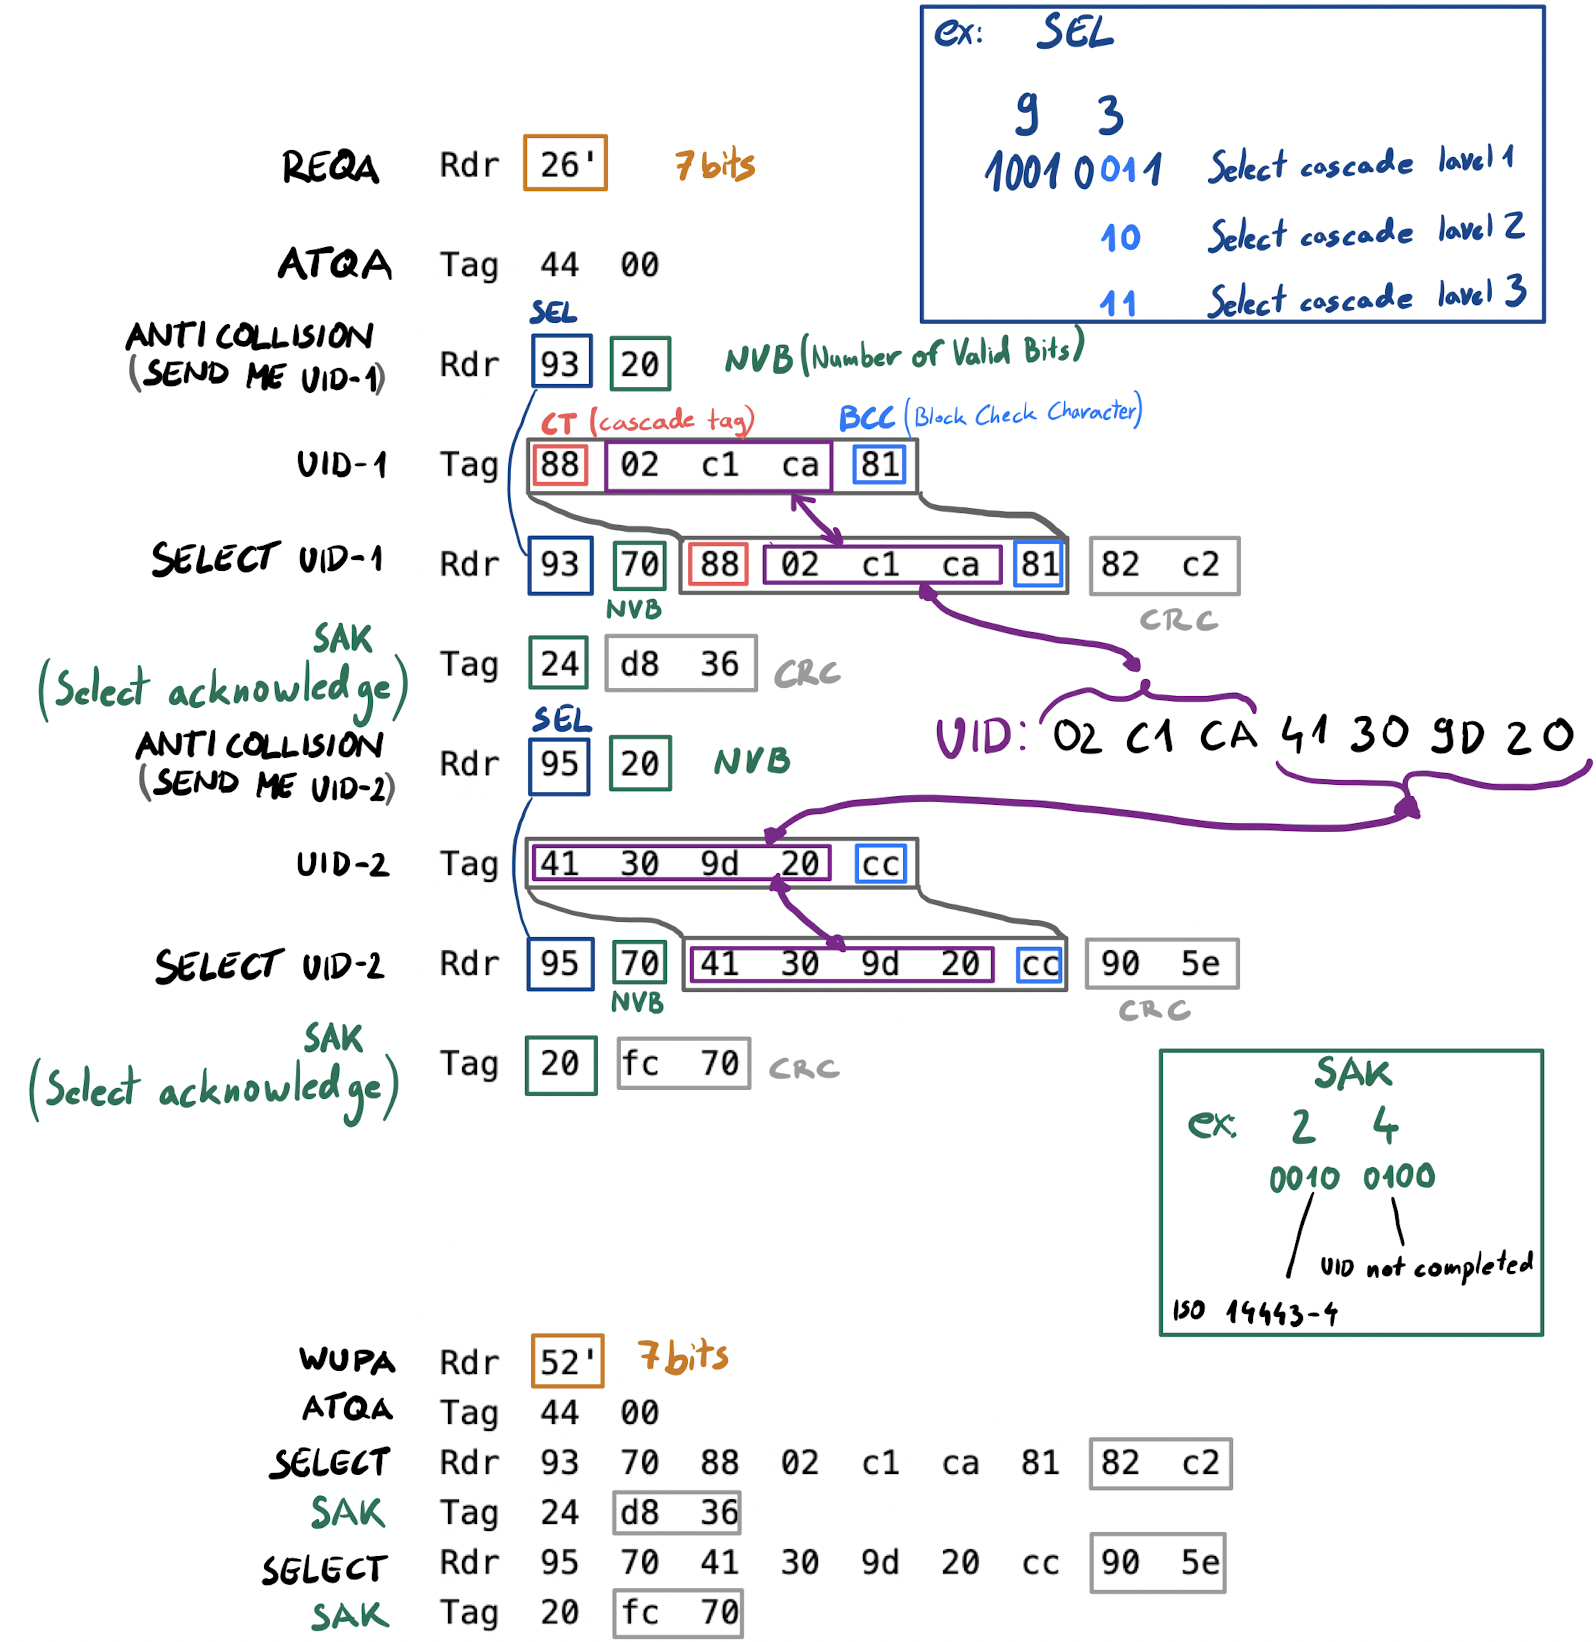 ex: SEL
9 3
1001 0011 Select cascade lavel 1
10 Select cascade lavel 2
11 Select cascade lavel 3
REQA Rdr 26' 7bits
ATQA Tag 44 00
SEL
ANTICOLLISION
(SEND ME UID-1) Rdr 93 20 NVB (Number of Valid Bits)
CT (cascade tag) BCC (Block Check Character)
UID-1 Tag 88 02 c1 ca 81
SELECT UID-1 Rdr 93 70 88 02 c1 ca 81 82 c2
NVB CRC
SAK
(Select acknowledge) Tag 24 d8 36 CRC
SEL
UID: 02 C1 CA 41 30 9D 20
ANTICOLLISION
(SEND ME UID-2) Rdr 95 20 NVB
UID-2 Tag 41 30 9d 20 cc
SELECT UID-2 Rdr 95 70 41 30 9d 20 cc 90 5e
NVB CRC
SAK
(Select acknowledge) Tag 20 fc 70 CRC
SAK
ex: 2 4
0010 0100
UID not completed
ISO 14443-4
WUPA Rdr 52' 7bits
ATQA Tag 44 00
SELECT Rdr 93 70 88 02 c1 ca 81 82 c2
SAK Tag 24 d8 36
SELECT Rdr 95 70 41 30 9d 20 cc 90 5e
SAK Tag 20 fc 70